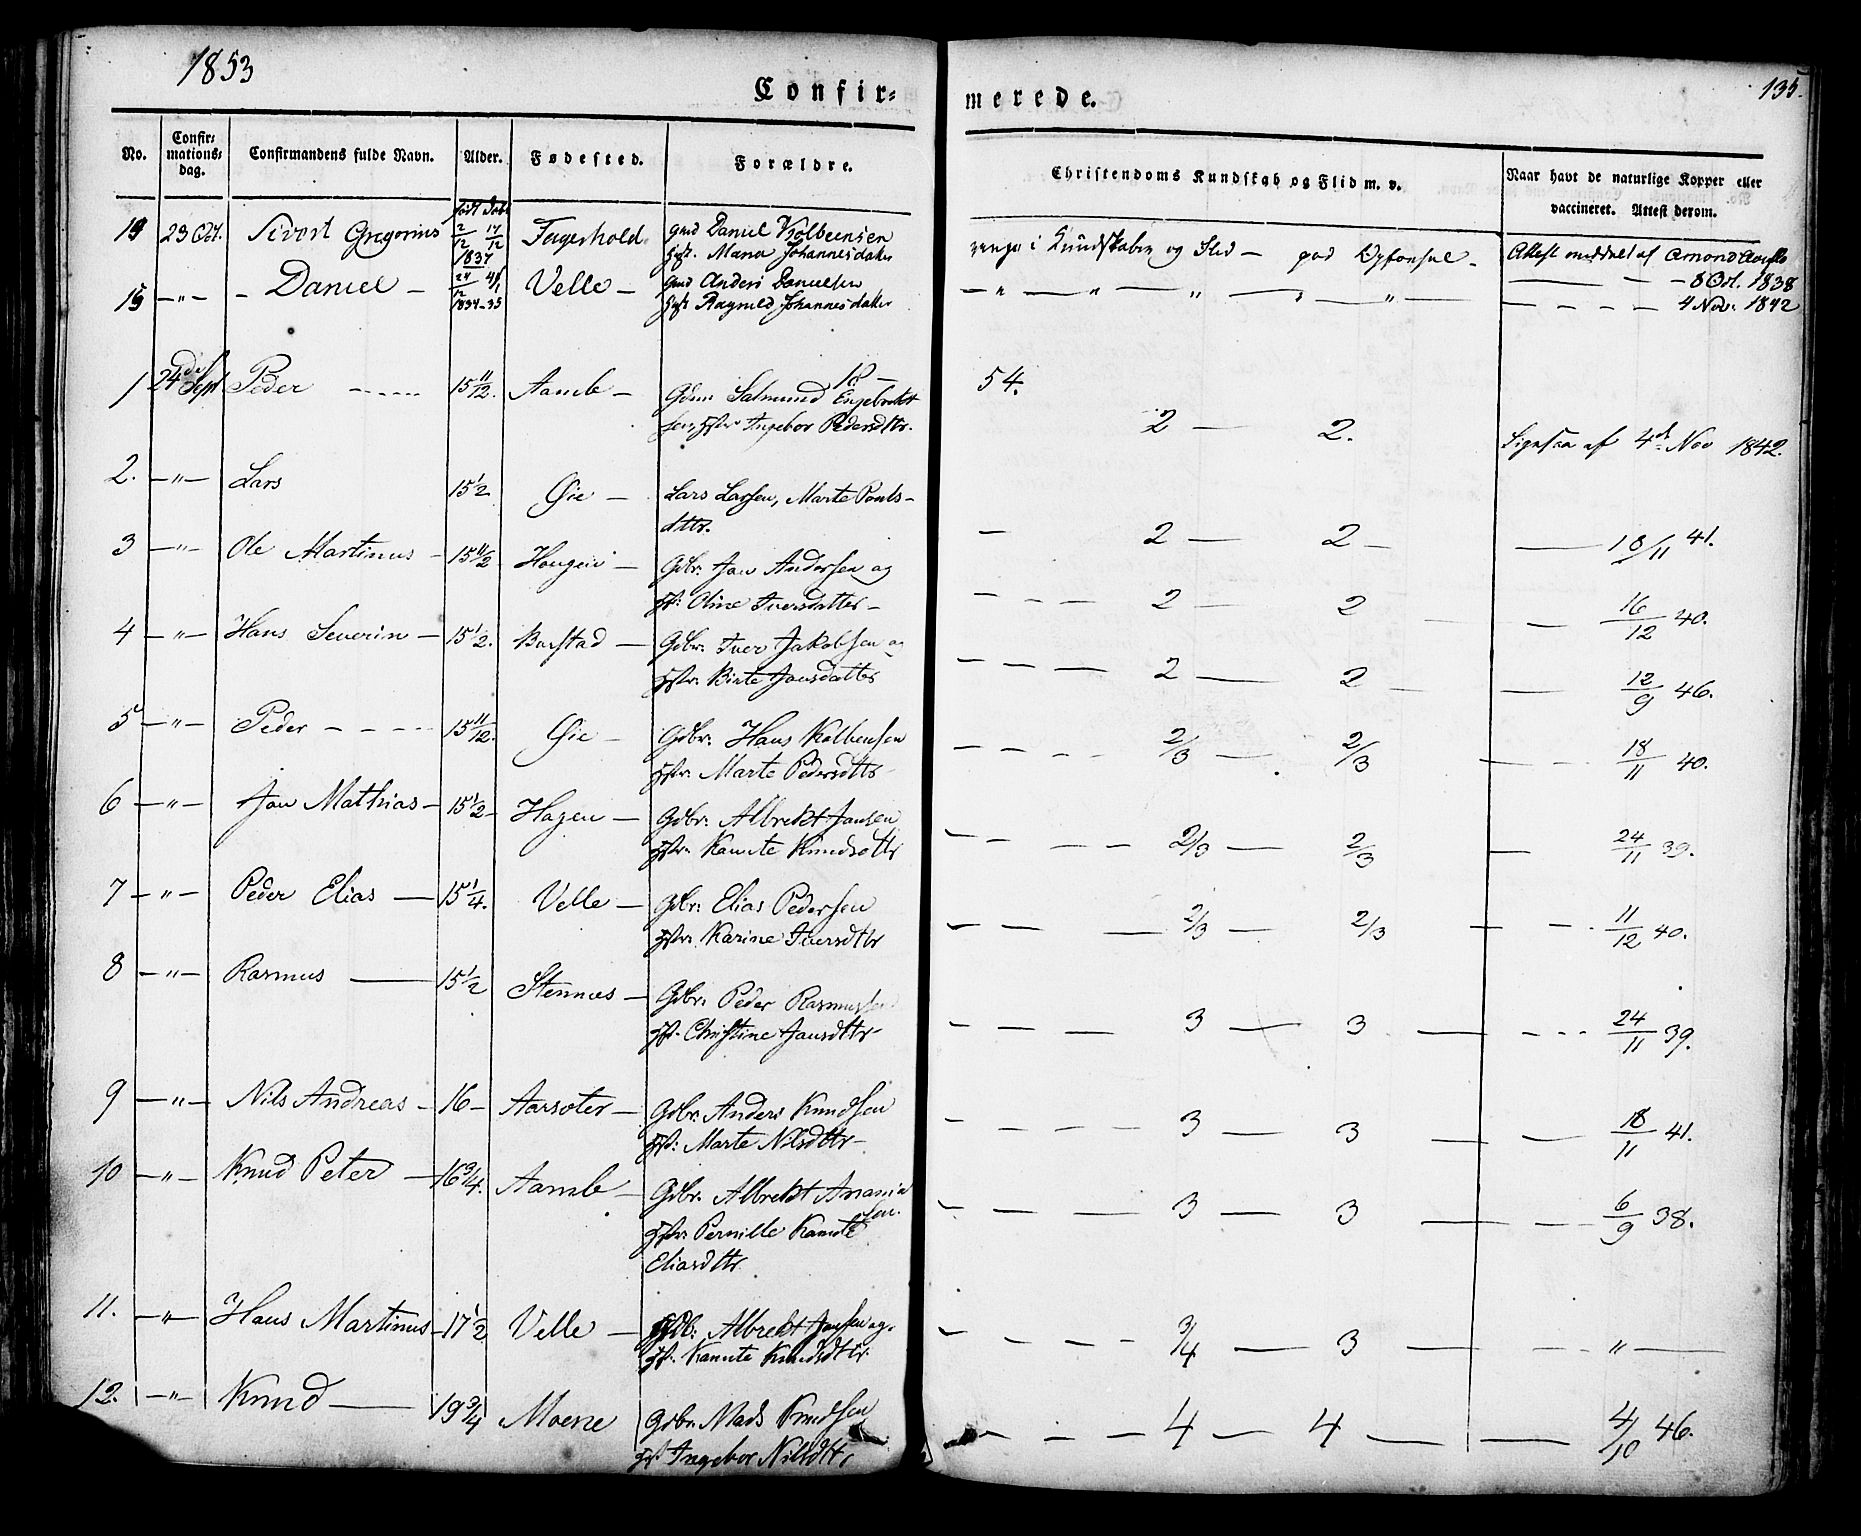 1853
135.
Confir= merede.
No. Confir=mations=dag. Confirmandens fulde Navn. Alder. Fødested. Forældre. Christendoms Kundskab og Flid m. v. Naar havt de naturlige Kopper eller vaccineret. Attest derom.
født Døbt
19 23 Oct. Sivert Gregorius 2/12 17/12 1837 Fagerhold gmd Daniel Kolbeensen
Johannesdater
i Kundskaber og Flid — god Opførsel — Attest meddelt af Amond
— 8 Oct. 1838
15 —"— Daniel — 24/12 1834-35 Velle — gmd Anders Danielsen
Ragnild Johannesdater
— " — " — " — " — " — — — — 4 Nov. 1842
18 — 54.
1 24de Sept Peder ----- 15 11/12. Aamb — Gdm Salmund Engebrekt
sen, Hstr Ingebor Pedersdttr.
2 — 2. 4de Nov 1842.
2. —"— Lars 15 1/2 Øie — Lars Larsen, Marte
dttr.
— 2 — 2 — — 18/11 41.
3 —"— Ole Martinus — 15 11/12 Haugen — Gdbr. Jon Andersen og
Hst: Oline Iversdatter —
— — — 2 — 2 — 16/12 40.
4 —"— Hans Severin — 15 1/2. Barstad — Gdbr. Iver Jakobsen og
Hstr. Birte Jonsdatter
— — — — 2 — 2 — — 12/9 46.
5 —"— Peder — — — — 15 11/12. Øie — Gdbr. Hans Kolbensen
Hstr. Marte Pedersdttr
— — — — 2/3 — 2/3 — — 18/11 40.
6 —"— Jon Mathias — 15 1/2 — Hagen — Gdbr. Albrekt Jonsen
Hstr. Kanute Knudsdttr
— — — — 2/3 — 2/3 — 24/11 39.
7 —"— Peder Elias — 15 1/4. Velle — Gdbr. Elias Pedersen
Hstr. Karine Iversdttr
— — — 2/3 — 2/3 — — 11/12 40.
8 —"— Rasmus — 15 1/2 Stennæs — Gdbr. Peder Rasmussen
Hst. Christine Jonsdttr
— — — 3 — 3 — — — — 24/11 39.
9 —"— Nils Andreas — 16 — Aarsæter — Gdbr. Anders Knudsen
Hst: Marte Nilsdttr —
— — — — 3 — 3 — — 18/11 41.
10 —"— Knud Peter — 16 3/4. Aamb — Gdbr. Albrekt Anania
sen.
Hstr. Pernille Kanute
Eliasdttr
— — — — 3 — 3 — — — 6/9 38.
11. —"— Hans Martinus — 17 1/2 Velle — Gdb: Albrekt Jonsen og
Hst. Kanute Knudsdttr
— — — — 3/4 — 3 — — " —
12. —"— Knud — 19 3/4 Moene Gdbr. Mads Knudsen
Hst Ingebor Nilsdttr
— — — 4 — 4 — — 4/10 46.